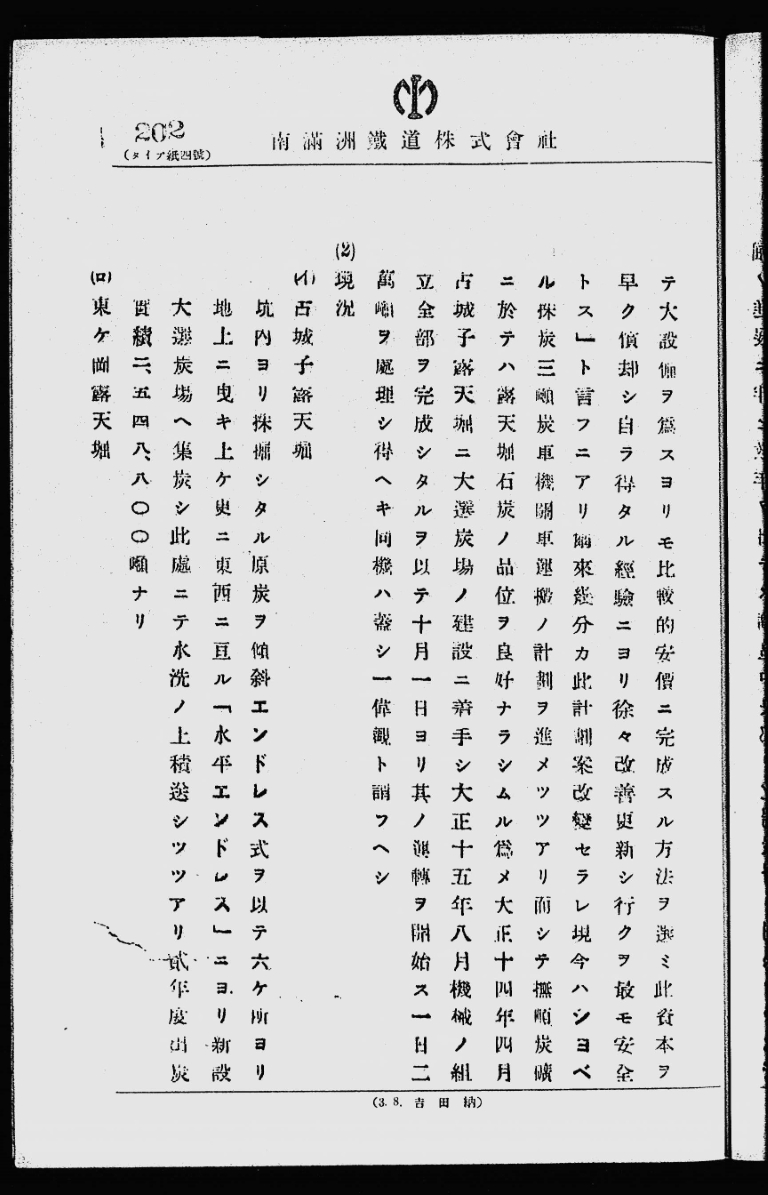 202
(タイプ紙四號)
南滿洲鐵道株式會社
テ大設備ヲ爲スヨリモ比較的安價ニ完成スル方法ヲ選ミ此資本ヲ
早ク償却シ自ラ得タル經驗ニヨリ徐々改善更新シ行クヲ最モ安全
トス」ト言フニアリ爾來幾分カ此計劃案改變セラレ現今ハシヨベ
ル採炭三噸炭車機關車運搬ノ計劃ヲ進メツツアリ而シテ撫順炭礦
ニ於テハ露天堀石炭ノ品位ヲ良好ナラシムル爲メ大正十四年四月
古城子露天堀ニ大選炭場ノ建設ニ着手シ大正十五年八月機械ノ組
立全部ヲ完成シタルヲ以テ十月一日ヨリ其ノ運轉ヲ開始ス一日二
萬噸ヲ處理シ得ヘキ同機ハ蓋シ一偉觀ト謂フヘシ
(2)現況
(イ)古城子露天堀
坑内ヨリ採掘シタル原炭ヲ傾斜エンドレス式ヲ以テ六ケ所ヨリ
地上ニ曳キ上ケ更ニ東西ニ亘ル「水平エンドレス」ニヨリ新設
大選炭場ヘ集炭シ此處ニテ水洗ノ上積送シツツアリ貳年度出炭
實績二、五四八、八〇〇噸ナリ
(ロ)東ケ岡露天堀
(3. 8. 吉田納)